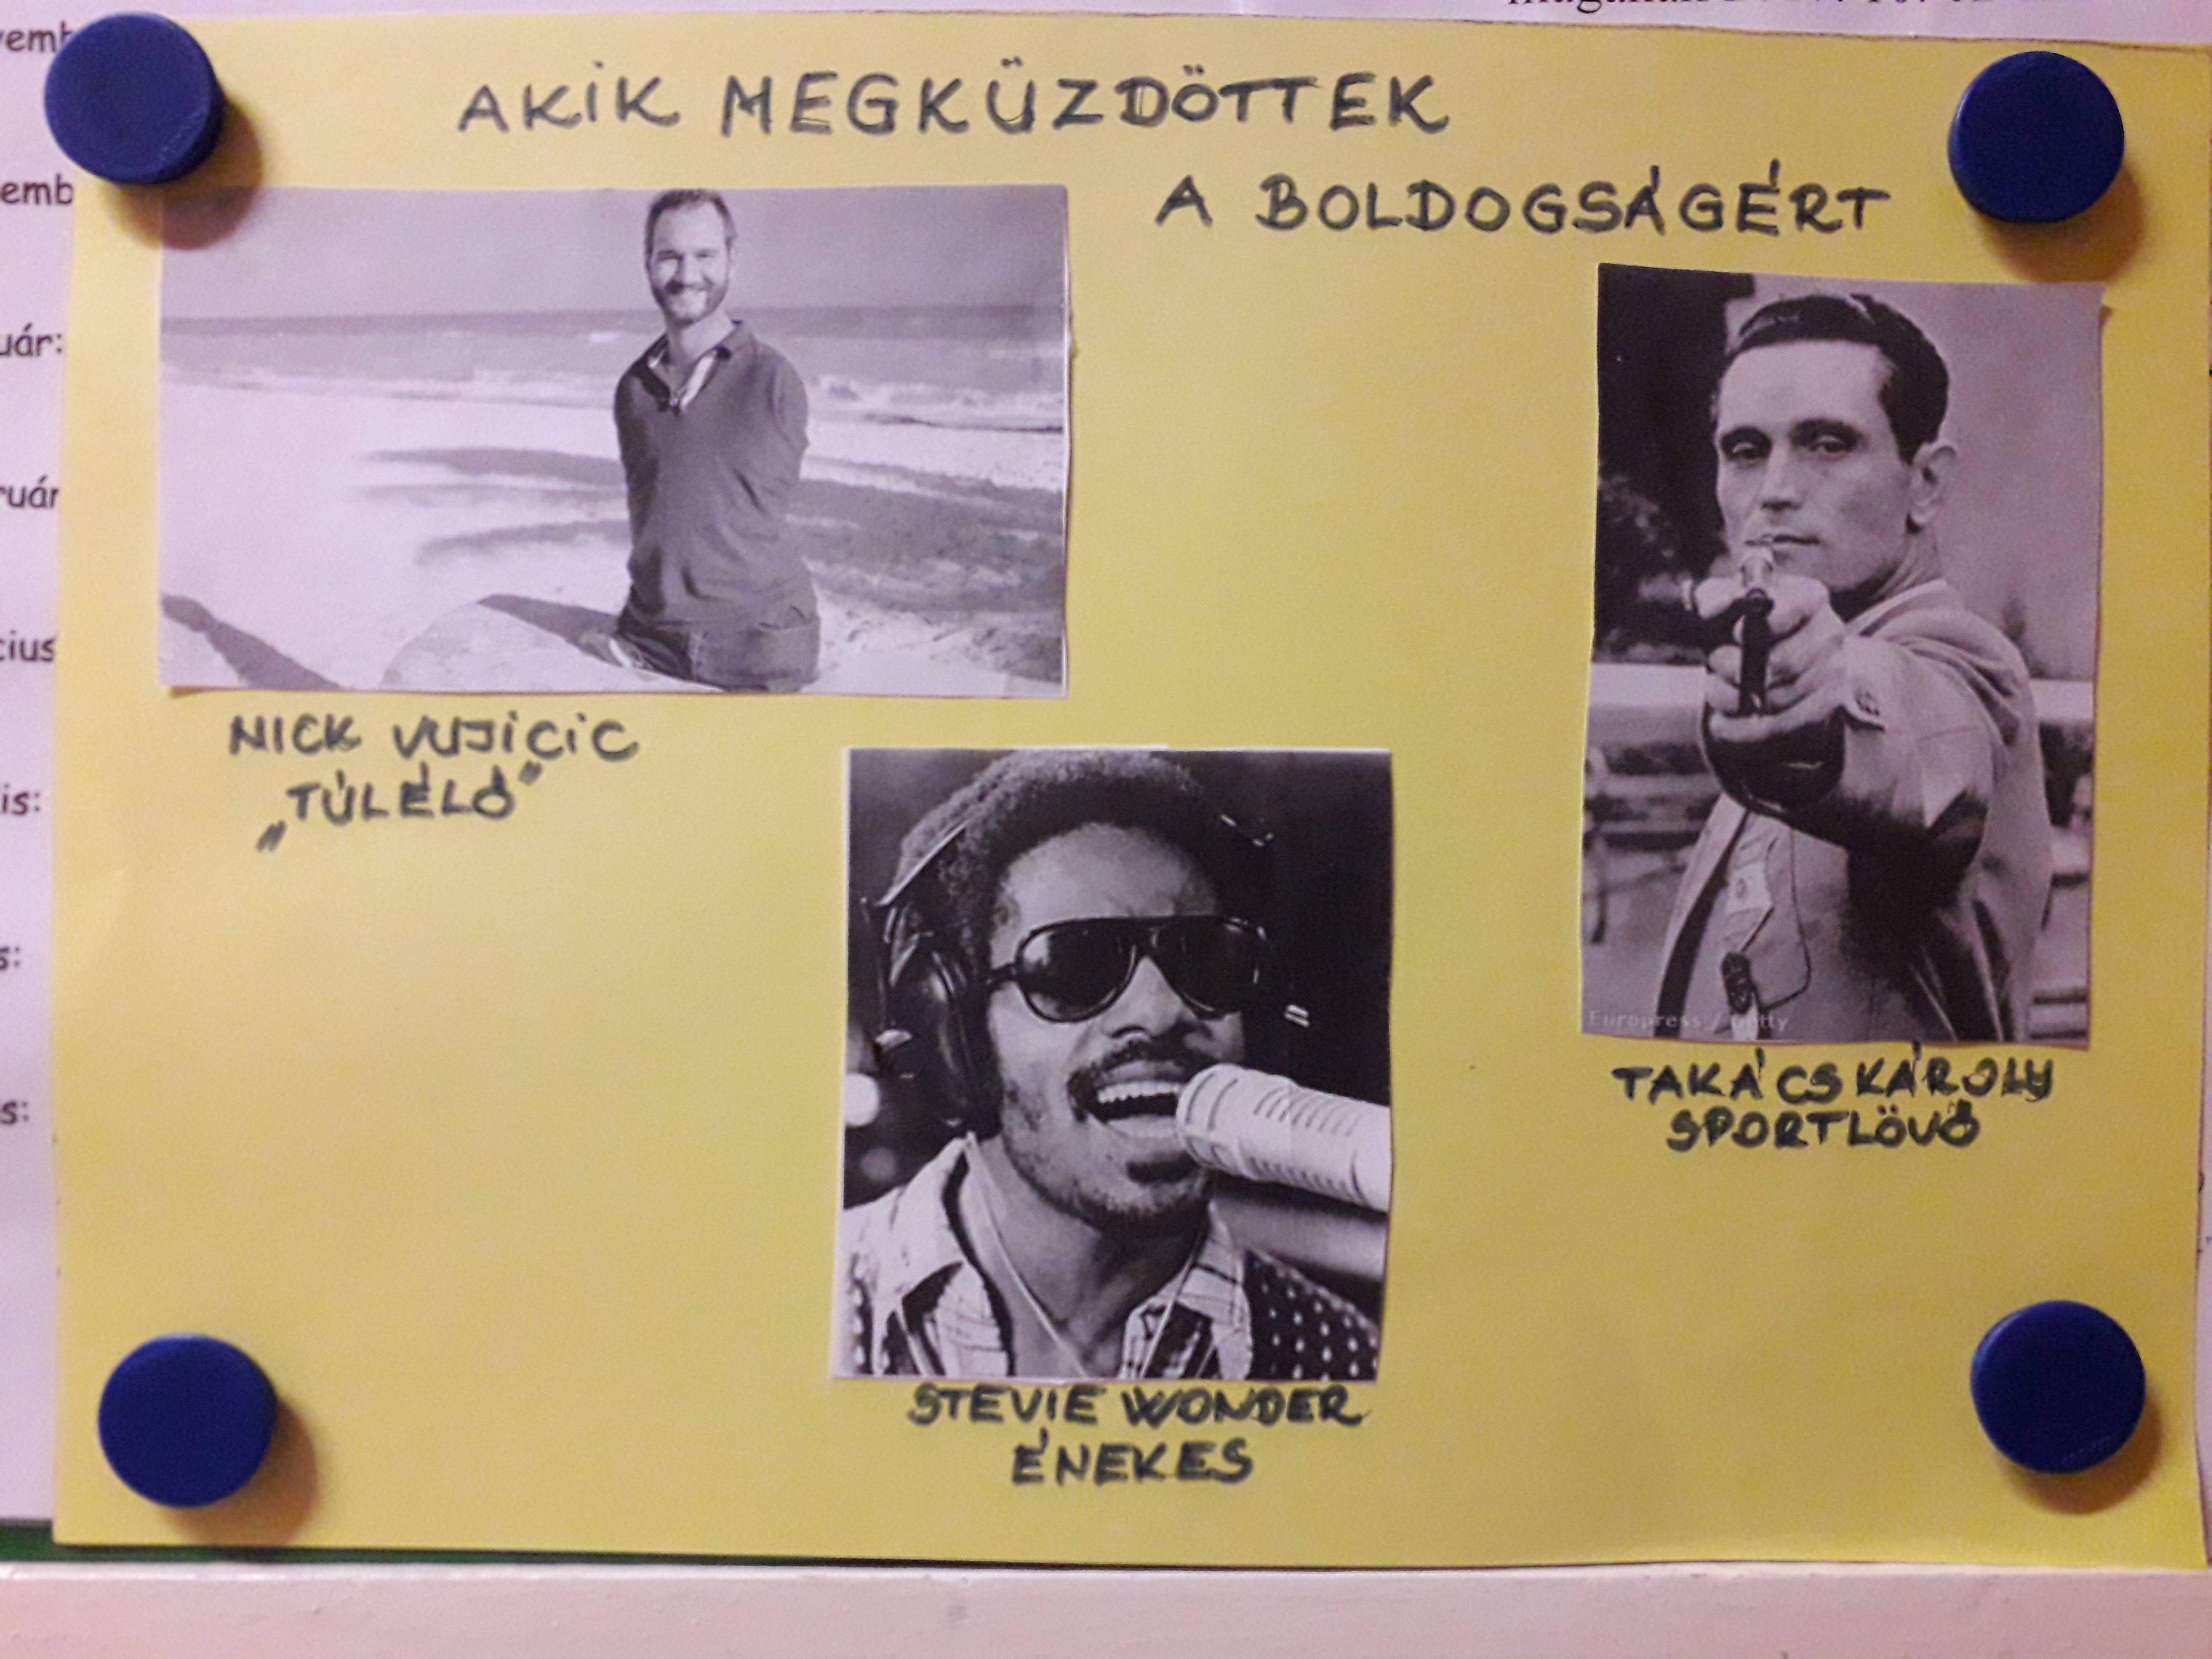 AKIK MEGKÜZDÖTTEK
A BOLDOGSÁGÉRT
NICK VUJICIC
„TÚLÉLŐ”
Europress / Getty
TAKÁCS KÁROLY
SPORTLÖVŐ
STEVIE WONDER
ÉNEKES
emb
uár:
ruár
cius
is:
s:
s: